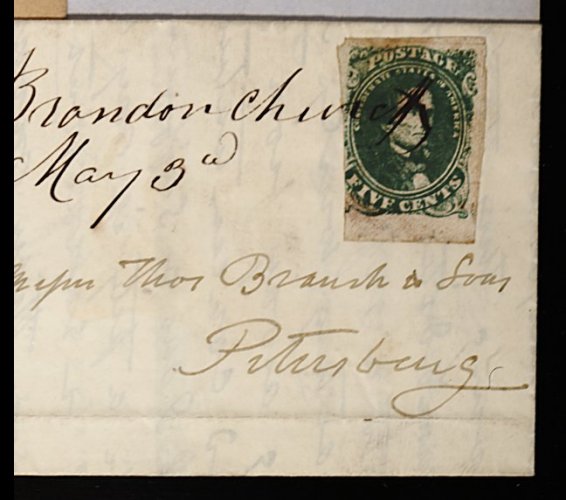 Brandon Church
May 3d
Messrs Thos Branch & Sons
Petersburg
POSTAGE
CONFEDERATE STATES OF AMERICA
FIVE CENTS